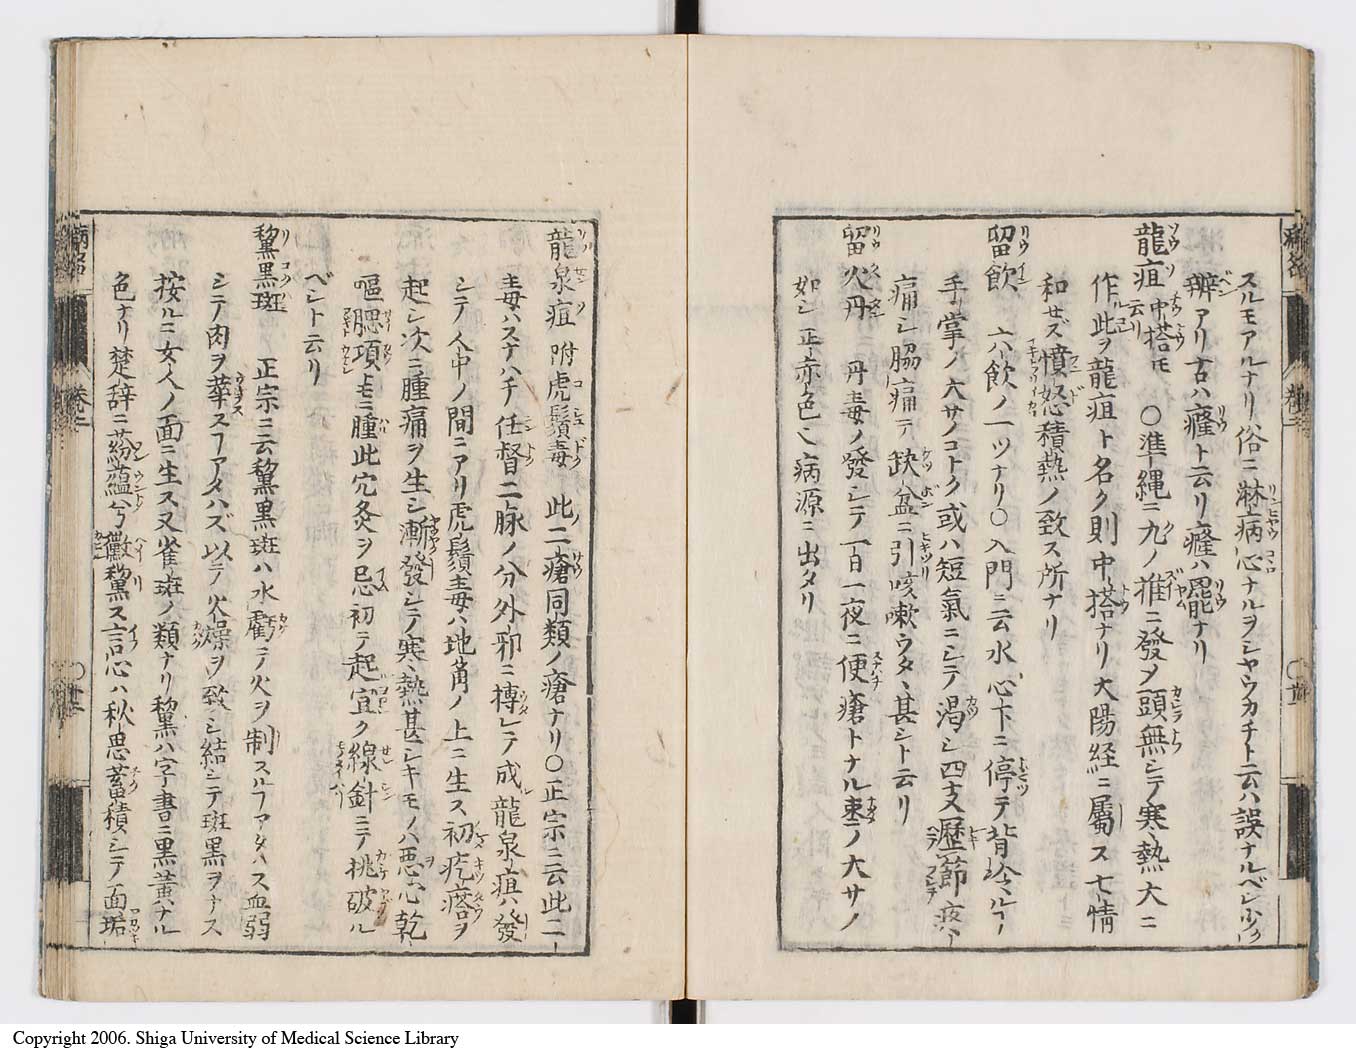 スルモアルナリ俗ニ淋病心ナルヲシヤウカチト云ハ誤ナルベシ少ク
辨アリ古ハ癃ト云リ癃ハ罷ナリ
龍疽 中搭モ云リ ○準縄ニ九ノ推ニ發メ頭無シテノ寒熱大ニ
作此ヲ龍疽ト名ク則中搭ナリ大陽経ニ屬ス七情
和せズ憤怒積熱ノ致ス所ナリ
留飲 六飲ノ一ツナリ○入門ニ云水心下ニ停テ背冷ルヿ
手掌ノ大サノコトク或ハ短氣ニシテ渇シ四支歷節疼ミ
痛シ脇痛テ缺盆ニ引咳嗽ウタヽ甚シト云リ
留火丹 丹毒ノ發シテ一日一夜ニ便瘡トナル枣ノ大サノ
如シ正赤色ニ病源ニ出タリ
龍泉疽 附虎鬚毒 此二瘡同類ノ瘡ナリ○正宗ニ云此二
毒ハスナハチ任督二脉ノ分外邪ニ搏レテ成龍泉疽ハ發
シテ人中ノ間ニアリ虎鬚毒ハ地角ノ上ニ生ス初疙瘩ヲ
起シ次ニ腫痛ヲ生シ漸發シテ寒熱甚シキモノハ悪心乾
嘔腮項トモニ腫此穴灸ヲ忌初テ起宜ク線針ニテ挑破ル
ベシト云リ
黧黒斑 正宗ニ云黧黒斑ハ水虧テ火ヲ制スルヿアタハス血弱
シテ肉ヲ華スヿアタハズ以テ火燥ヲ致シ結シテ斑黒ヲナス
按ルニ女人ノ面ニ生ス又雀斑ノ類ナリ黧ハ字書ニ黒黄ナル
色ナリ楚辞ニ蒶蘊兮黴黧ス言心ハ秋思蓄積シテ面垢